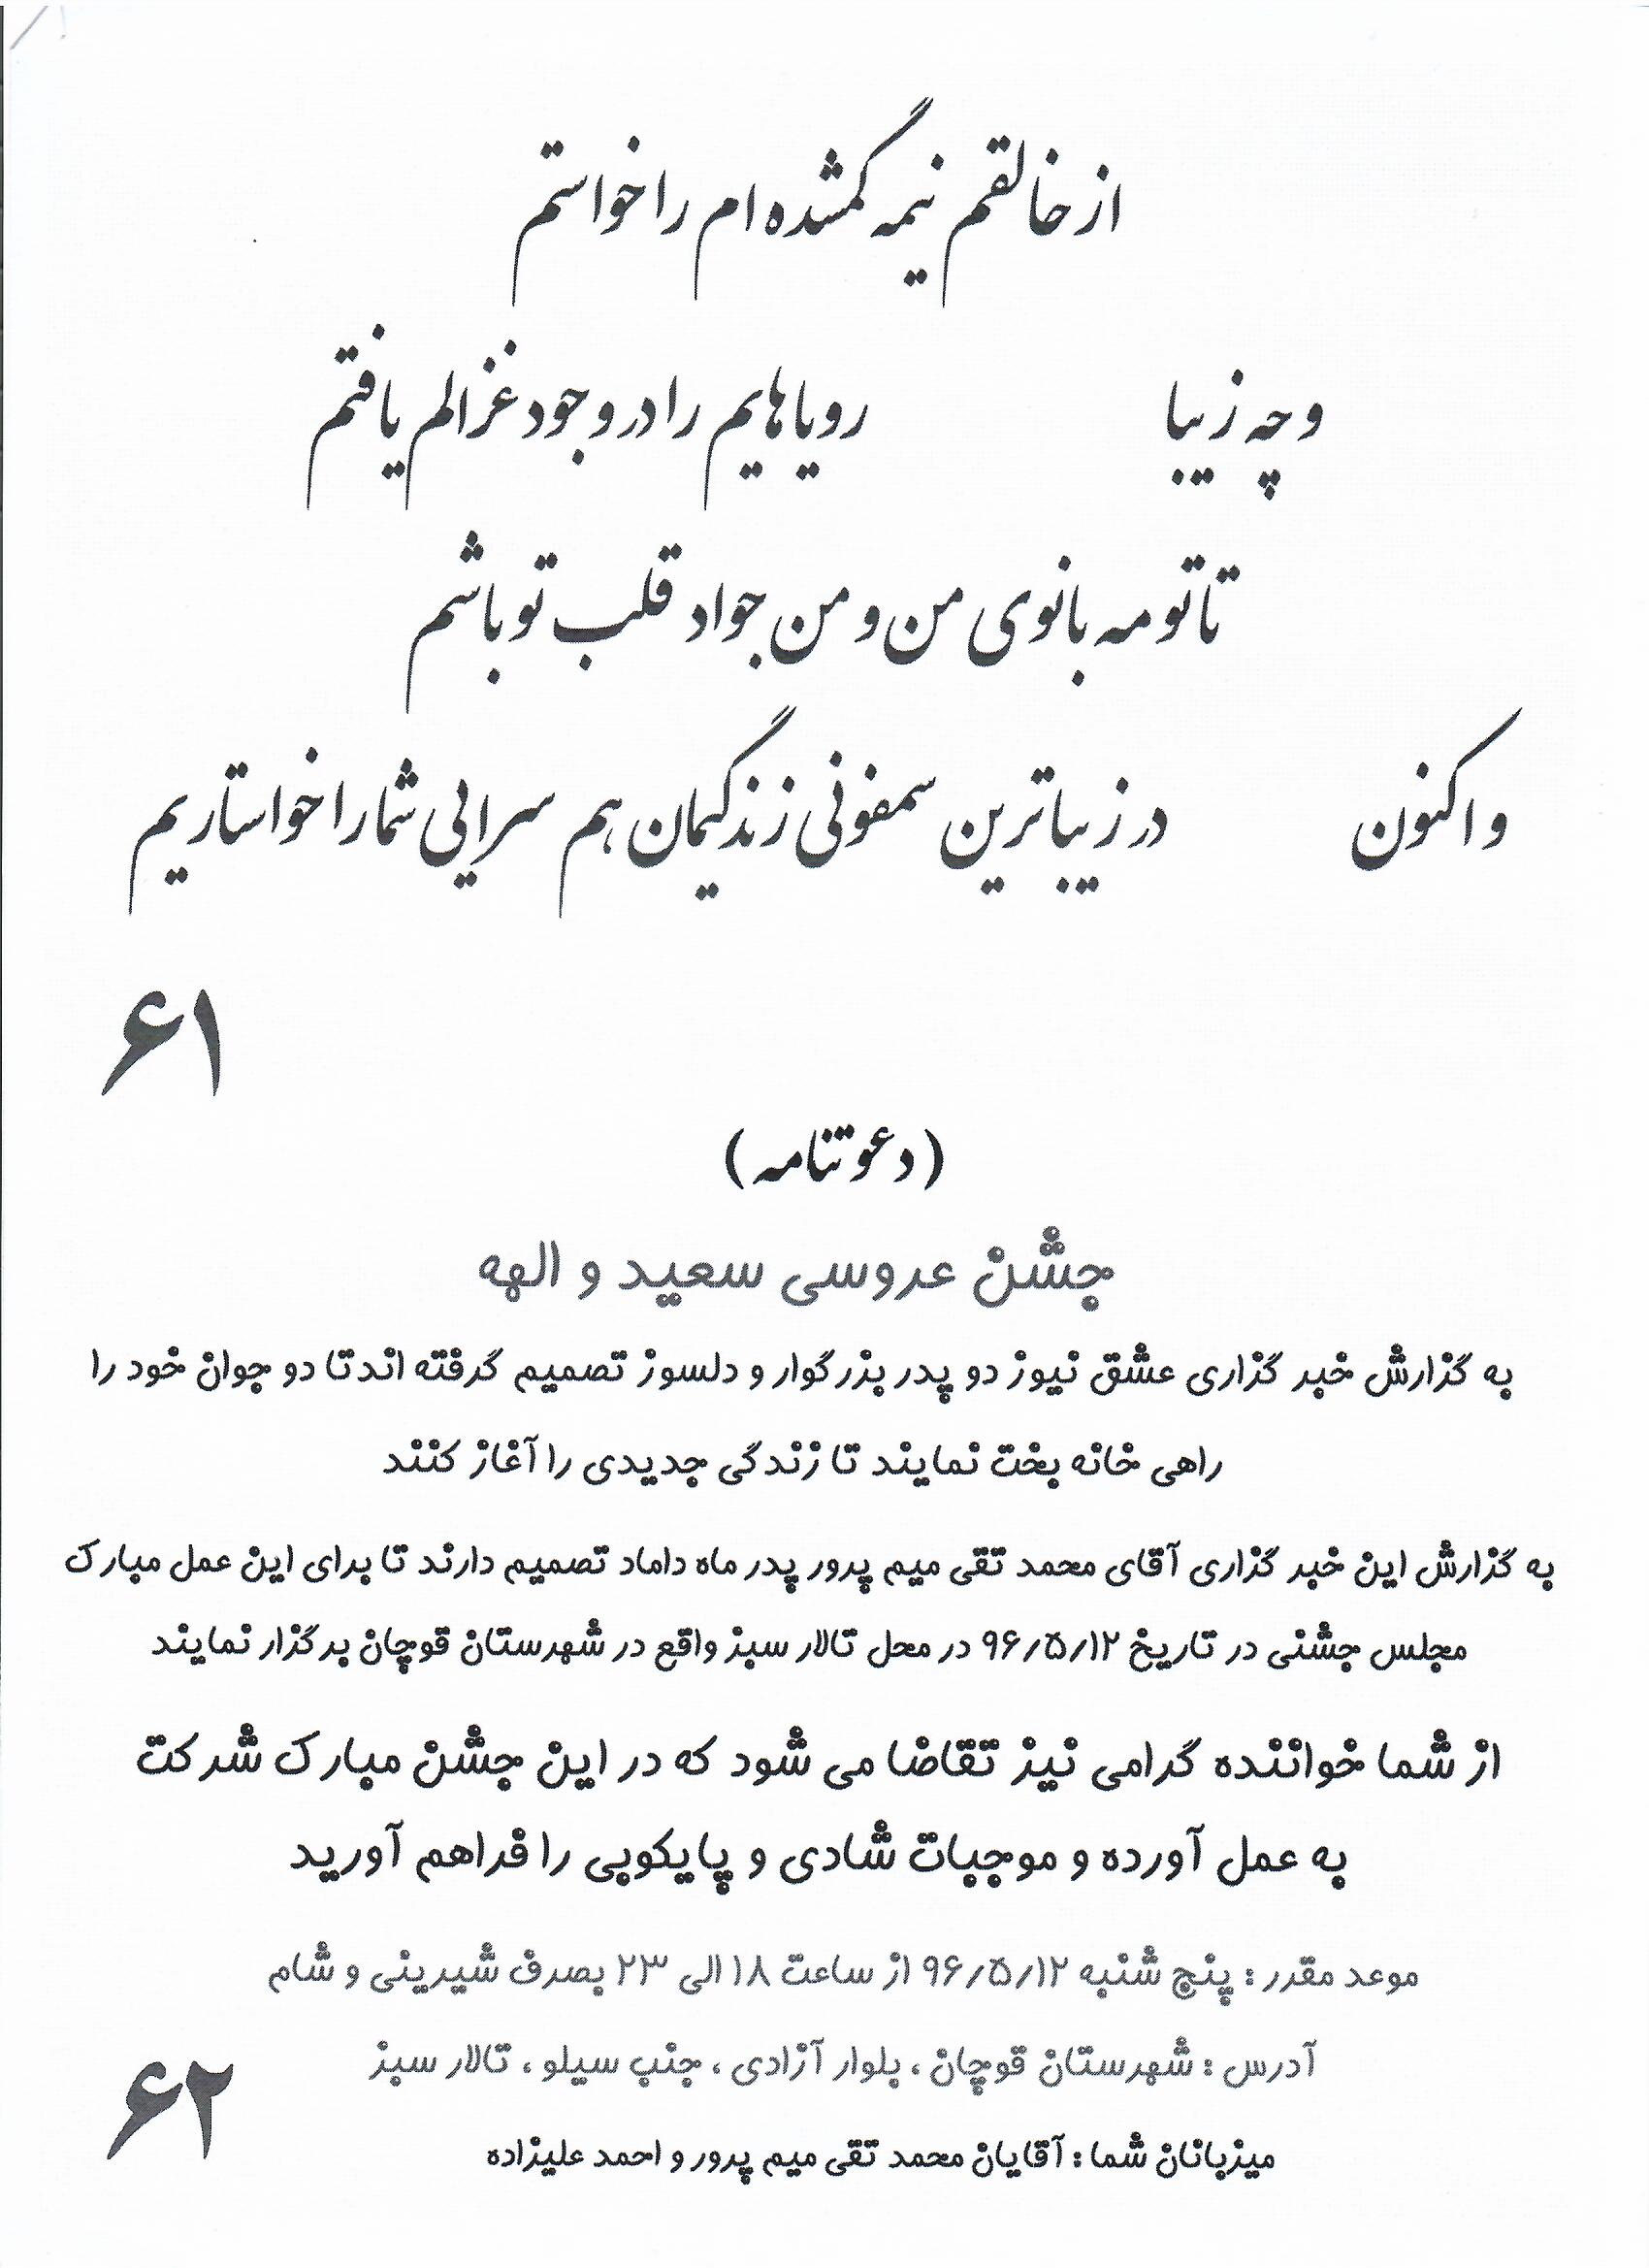 از خالقم نیمه گمشده ام را خواستم
و چه زیبا رویاهایم را در وجود غزالم یافتم
تا تو مه بانوی من و من جواد قلب تو باشم
و اکنون در زیباترین سمفونی زندگیمان هم سرایی شما را خواستاریم
۶۱
(دعوتنامه)
جشن عروسی سعید و الهه
به گزارش خبر گزاری عشق نیوز دو پدر بزرگوار و دلسوز تصمیم گرفته اند تا دو جوان خود را
راهی خانه بخت نمایند تا زندگی جدیدی را آغاز کنند
به گزارش این خبر گزاری آقای محمد تقی میم پرور پدر ماه داماد تصمیم دارند تا برای این عمل مبارک
مجلس جشنی در تاریخ ۹۶/۵/۱۲ در محل تالار سبز واقع در شهرستان قوچان برگزار نمایند
از شما خواننده گرامی نیز تقاضا می شود که در این جشن مبارک شرکت
به عمل آورده و موجبات شادی و پایکوبی را فراهم آورید
موعد مقرر : پنج شنبه ۹۶/۵/۱۲ از ساعت ۱۸ الی ۲۳ بصرف شیرینی و شام
آدرس : شهرستان قوچان ، بلوار آزادی ، جنب سیلو ، تالار سبز
۶۲
میزبانان شما : آقایان محمد تقی میم پرور و احمد علیزاده